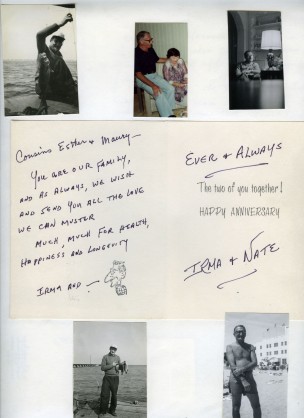 Cousins Esther & Maury—
You are our family,
and as always, we wish
and send you all the love
we can muster
Much, much for health,
happiness and longevity
Irma and —
Ever & Always
The two of you together!
HAPPY ANNIVERSARY
Irma & Nate